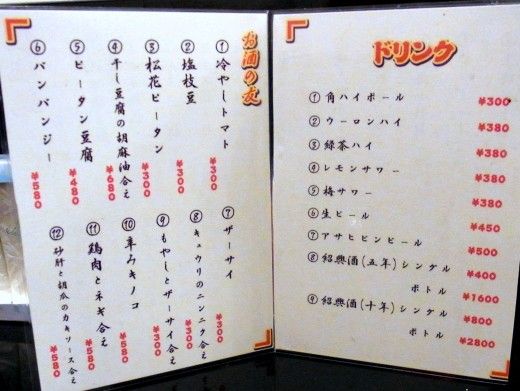 お酒の友
①冷やしトマト ¥300
②塩枝豆 ¥300
③松花ピータン ¥300
④干し豆腐の胡麻油合え ¥680
⑤ピータン豆腐 ¥480
⑥バンバンジー ¥580
⑦ザーサイ ¥300
⑧キュウリのニンニク合え ¥300
⑨もやしとザーサイ合え ¥300
⑩辛みキノコ ¥580
⑪鶏肉とネギ合え ¥580
⑫砂肝と胡瓜のカキソース合え ¥580
ドリンク
①角ハイボール ¥300
②ウーロンハイ ¥380
③緑茶ハイ ¥380
④レモンサワー ¥380
⑤梅サワー ¥380
⑥生ビール ¥450
⑦アサヒビンビール ¥500
⑧紹興酒(五年)シングル ¥400
ボトル ¥1600
⑨紹興酒(十年)シングル ¥800
ボトル ¥2800